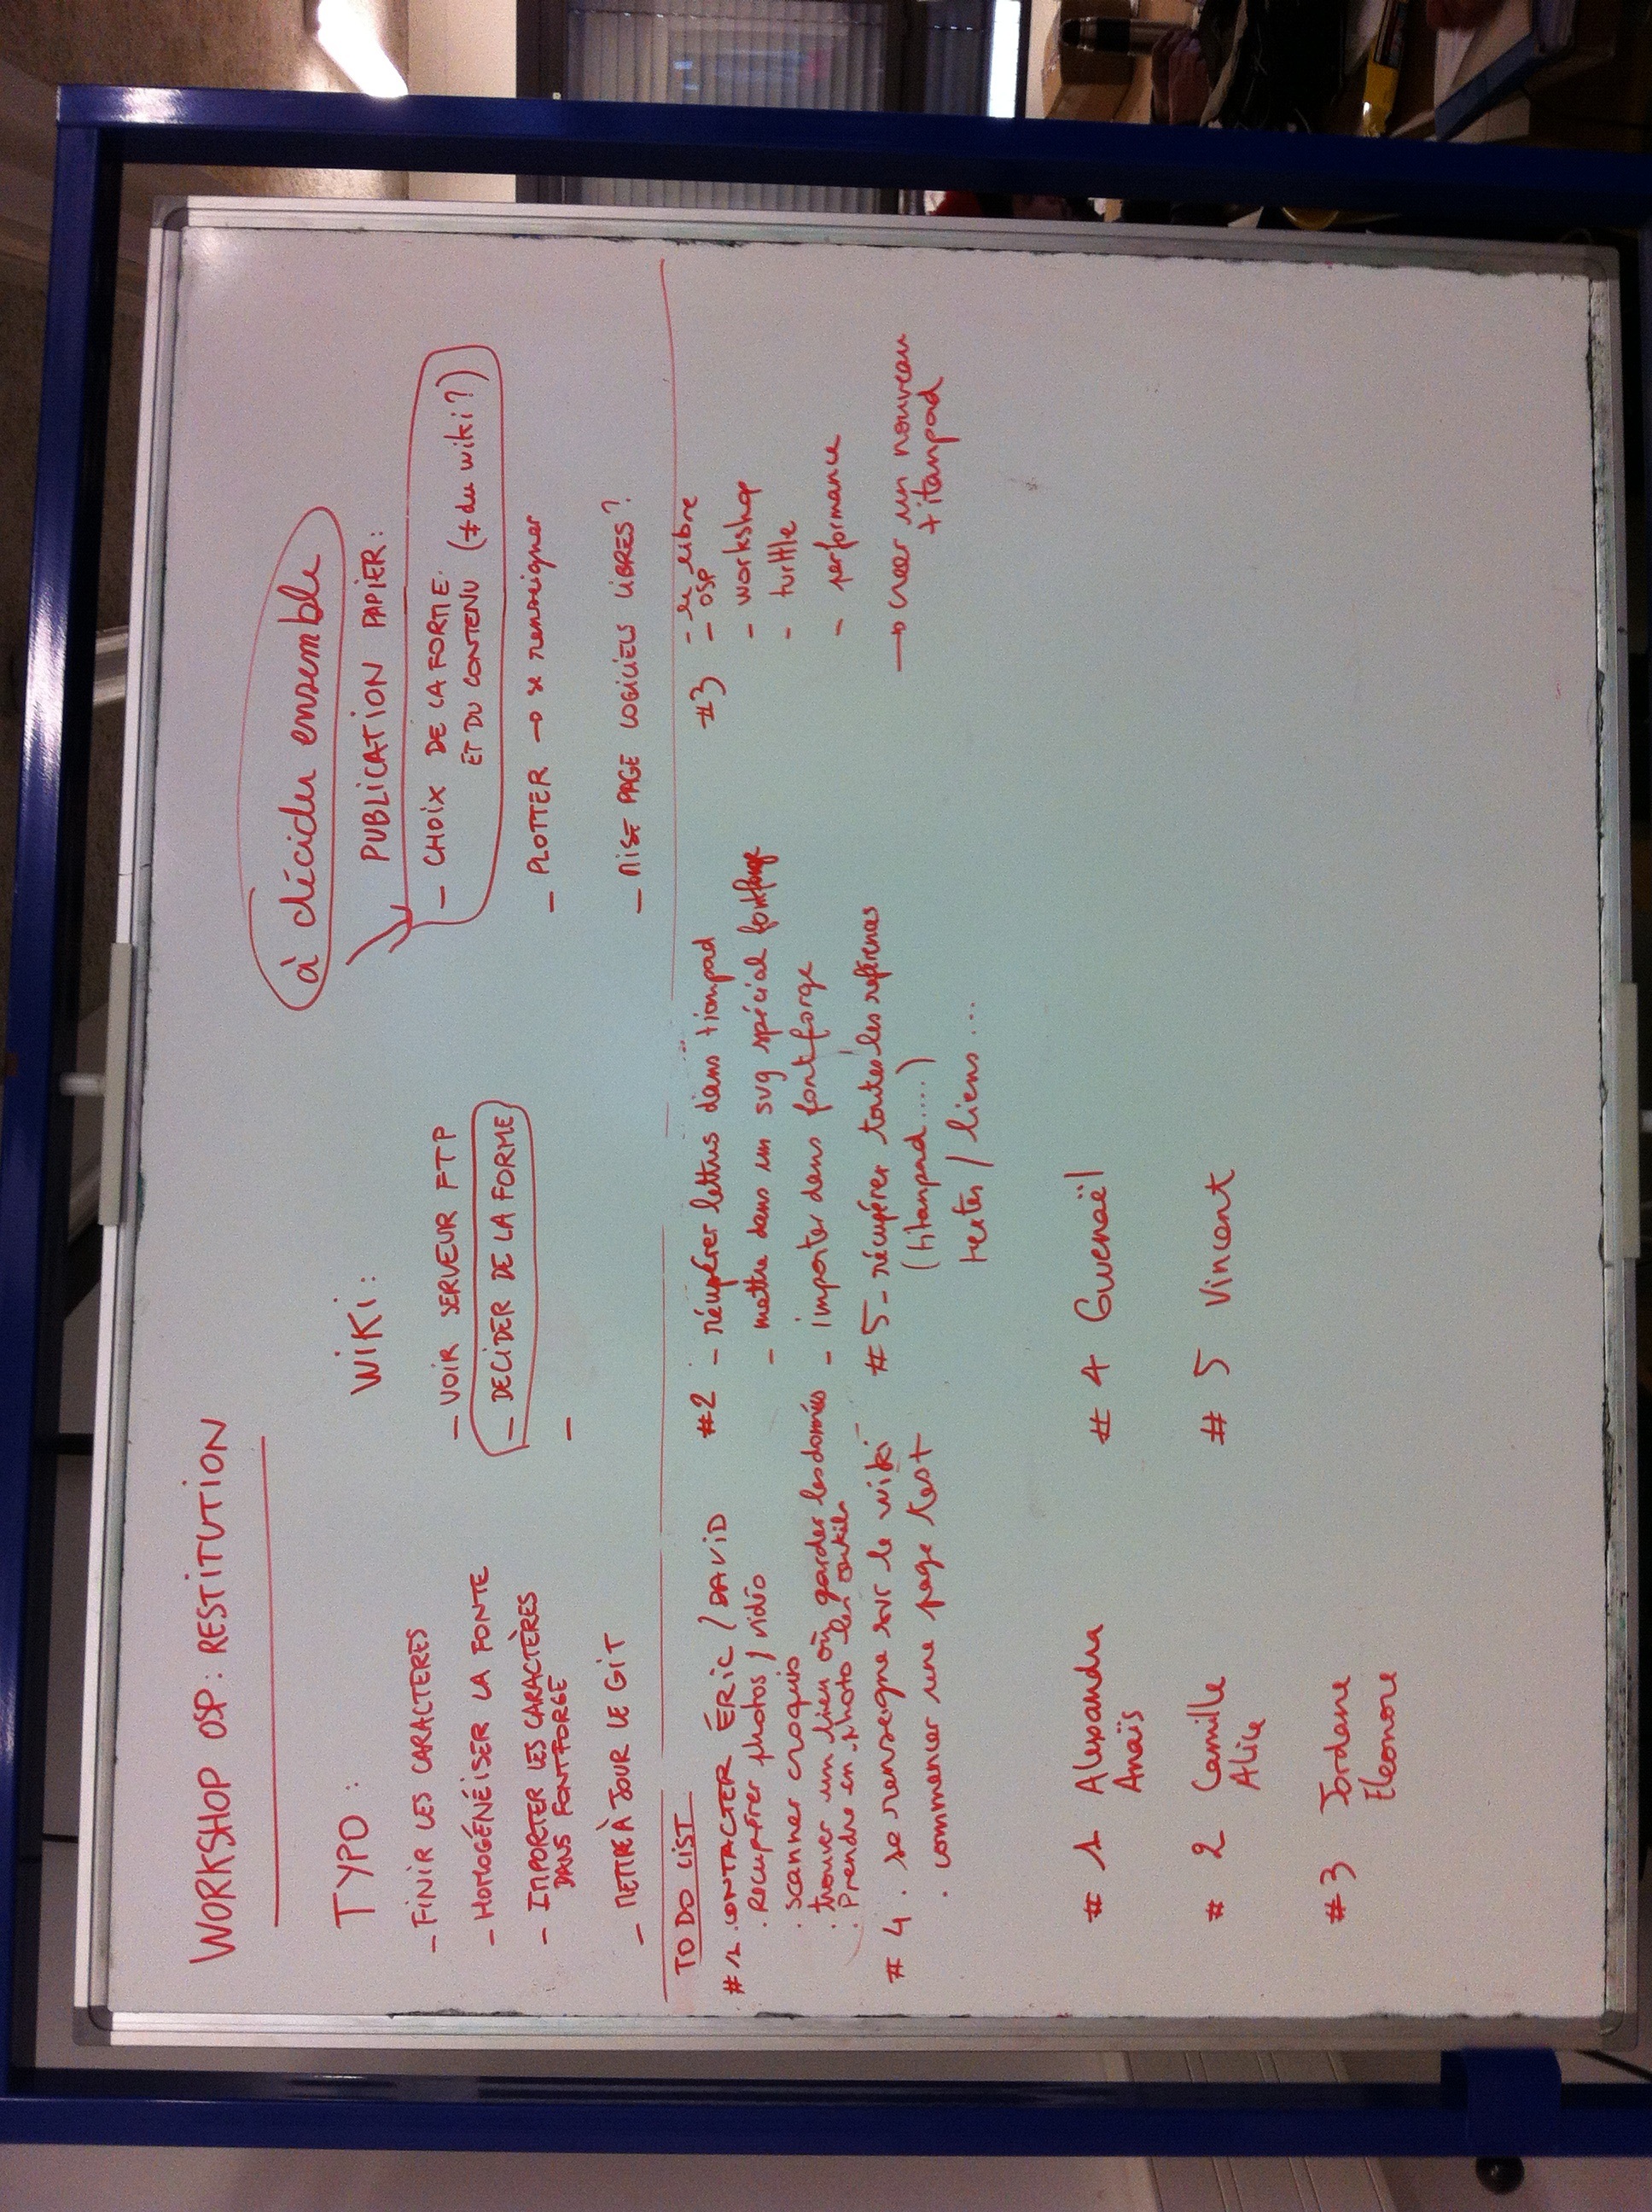 WORKSHOP OSP : RESTITUTION
TYPO :
- FINIR LES CARACTERES
- HOMOGÉNÉISER LA FONTE
- IMPORTER LES CARACTÈRES
DANS FONTFORGE
- METTRE À JOUR LE GIT
WIKI :
- VOIR SERVEUR FTP
- DECIDER DE LA FORME
-
à décider ensemble
PUBLICATION PAPIER :
- CHOIX DE LA FORME
ET DU CONTENU (≠ du wiki ?)
- PLOTTER → se renseigner
- MISE PAGE LOGICIELS LIBRES ?
TO DO LIST
#1 . CONTACTER ÉRIC / DAVID
. Recupérer photos / vidéo
. Scanner croquis
. trouver un lien où garder les données
. Prendre en photo les outils
#2 - récupérer lettres dans tianpad
- mettre dans un svg spécial fontforge
- importer dans fontforge
#3 - le libre
- OSP
- workshop
- turtle
- performance
→ créer un nouveau
titanpad
#4 . se renseigne sur le wiki
. commencer une page test
#5 - récupérer toutes les références
(titanpad .....)
textes / liens ...
#1 Alexandra
Anaïs
#2 Camille
Alice
#3 Jordane
Eleonore
#4 Gwenaël
#5 Vincent